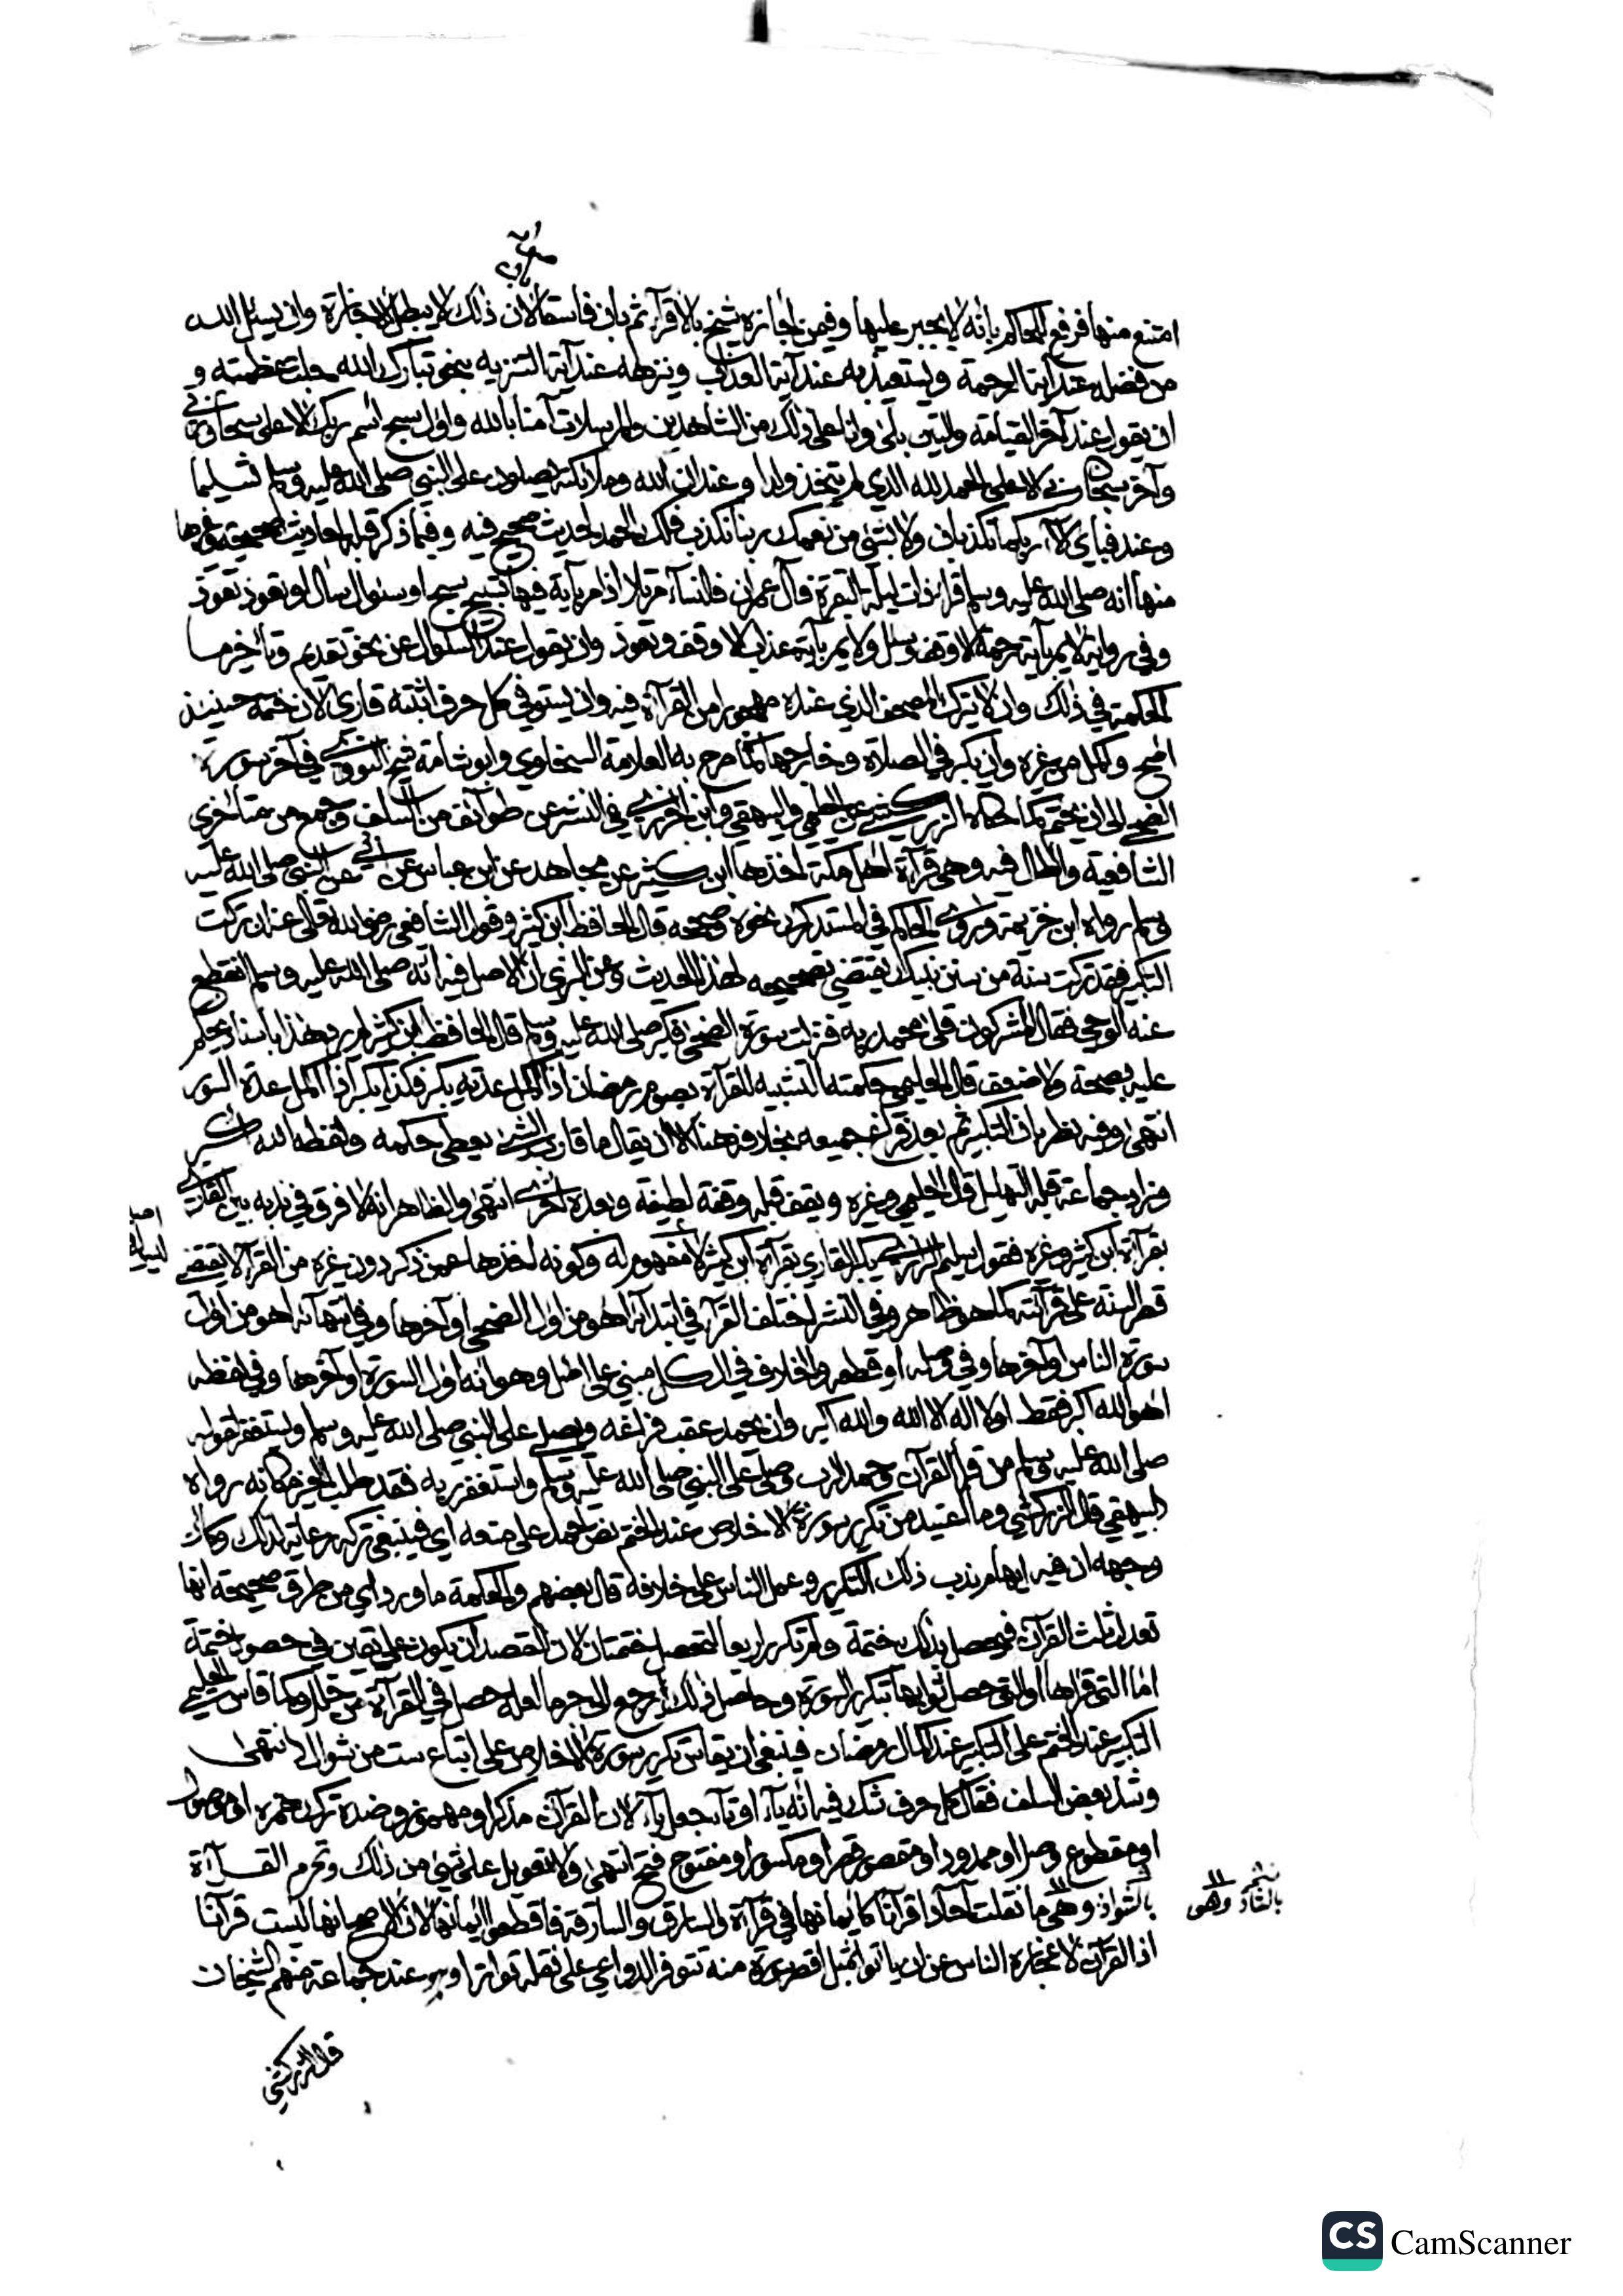 امتنع منها فرفع للحاكم بانه لا يجبر عليها وفيمن اجازه شيخ بالاقراء ثم بان فاسقا لان ذلك لا يبطل الاجازة وان يسئل الله
من فضله عند آية الرحمة وليستعيذ به عند آية العذاب وينزهه عند آية التنزيه بنحو تبارك الله جلت عظمته و
ان يقول عند آخر القيامة والتين بلى وانا على ذلك من الشاهدين والمرسلات آمنا بالله واول سبح اسم ربك الاعلى سبحان ربي
وآخر سبحان الحمد لله الذي لم يتخذ ولدا وعند ان الله وملائكته يصلون على النبي صلى الله عليه وسلم تسليما
وعند فباي آلاء ربكما تكذبان ولا بشيء من نعمك ربنا نكذب فلك الحمد لحديث صحيح فيه وفيما ذكر قبله احاديث صحيحة وغيرها
منها انه صلى الله عليه وسلم قرا ذات ليلة البقرة فآل عمران فالنساء مترسلا اذا مر بآية فيها تسبيح سبح او سئوال سال او تعوذ تعوذ
وفي رواية لا يمر بآية رحمة الا وقف وسئل ولا يمر بآية عذاب الا وقف وتعوذ وان يقول عند السئوال عن نحو تقديم وتأخير ما
الحكمة في ذلك وان لا يترك المصحف الذي عنده مهجورا من القراءة فيه وان يستوفي كل حرف اثبته قارئ لان ختمه حينئذ
اصح واكمل من غيره وان يكبر في الصلاة وخارجها كما صرح به العلامة السخاوي وابو شامة شيخ النووي في آخر سورة
الضحى الى ان يختم كما حكاه الزركشي عن الحليمي والبيهقي وابن الجزري في النشر عن طوائف من السلف وجمع من متأخري
الشافعية واطال فيه وهي قراءة اهل مكة اخذها ابن كثير عن مجاهد عن ابن عباس عن ابي عن النبي صلى الله عليه
وسلم رواه ابن خزيمة وروى الحاكم في المستدرك نحوه وصححه قال الحافظ ابن كثير وقول الشافعي رضي الله تعالى عنه ان تركت
التكبير فقد تركت سنة من سنن نبيك يقتضي تصحيحه لهذا الحديث وعن البزي ان الاصل فيه انه صلى الله عليه وسلم انقطع
عنه الوحي فقال المشركون قلى محمدا ربه فنزلت سورة الضحى فكبر صلى الله عليه وسلم قال الحافظ ابن كثير لم يرو هذا باسناد يحكم
عليه بصحة ولا ضعف قال الحليمي وحكمته التشبيه للقراءة بصوم رمضان اذا اكمل عدته يكبر فكذا يكبر اذا اكمل عدة السور
انتهى وفيه نظر بان التكبير ثم بعد فراغ جميعه بخلافه هنا الا ان يقال ما قارب الشيء يعطى حكمه ولفظه الله اكبر
وزاد جماعة قبله التهليل قال الحليمي وغيره ويقف قبله وقفة لطيفة وبعده اخرى انتهى والظاهر انه لا فرق في ندبه بين القارئ
بقراءة ابن كثير وغيره فقول سليم الرازي يكبر القاري بقراءة ابن كثير لا مفهوم له وكونه اخذها عمن ذكر دون غيره من القراء لا يقتضي
قصر السنة على قراءته كما هو ظاهر وفي النشر اختلف القراء في ابتدائه اهو من اول الضحى او آخرها وفي انتهائه اهو من اول
سورة الناس او آخرها وفي وصله او قطعه والخلاف في الكل مبني على اصل وهو انه لاول السورة او لآخرها وفي لفظه
اهو الله اكبر فقط او لا اله الا الله والله اكبر وان يحمد عقب فراغه ويصلي على النبي صلى الله عليه وسلم ويستغفر لقوله
صلى الله عليه وسلم من قرأ القرآن وحمد الرب وصلى على النبي صلى الله عليه وسلم واستغفر ربه فقد طلب الخير مكانه رواه
البيهقي قال الزركشي وما اعتيد من تكرير سورة الاخلاص عند الختم نص احمد على منعه اي فينبغي تركه رعاية لذلك وكأن
وجهه ان فيه ايهام ندب ذلك التكرير وعمل الناس على خلافه قال بعضهم والحكمة ما ورد اي من طرق صحيحة انها
تعدل ثلث القرآن فيحصل بذلك ختمة ولم تكرر اربعا لتحصل ختمتان لان القصد ان يكون على يقين في حصول ختمة
اما التي قراها او التي حصل ثوابها بتكرير السورة وحاصل ذلك يرجع الى جبر ما لعله حصل في القراءة من خلل وكما قاس الحليمي
التكبير عند الختم على التكبير عند اكمال رمضان فينبغي ان يقاس تكرير سورة الاخلاص على اتباع ست من شوال انتهى
وشذ بعض السلف فقال كل حرف شك فيه انه ياء او تاء يجعل ياء لان القرآن مذكر او مهموز وضده ترك همزه او موصول
او مقطوع وصل او ممدود او مقصور قصر او مكسور او مفتوح فتح انتهى ولا تعويل على شيء من ذلك وتحرم القراءة
بالشواذ وهي ما نقلت آحادا قرآنا كأيمانهما في قراءة والسارق والسارقة فاقطعوا ايمانهما لان الاصح انها ليست قرآنا
اذ القرآن لاعجازه الناس عن ان ياتوا بمثل اقصر سورة منه تتوفر الدواعي على نقله تواترا وهو عند جماعة منهم الشيخان
بالشاذ وهو
قال الزركشي
CamScanner